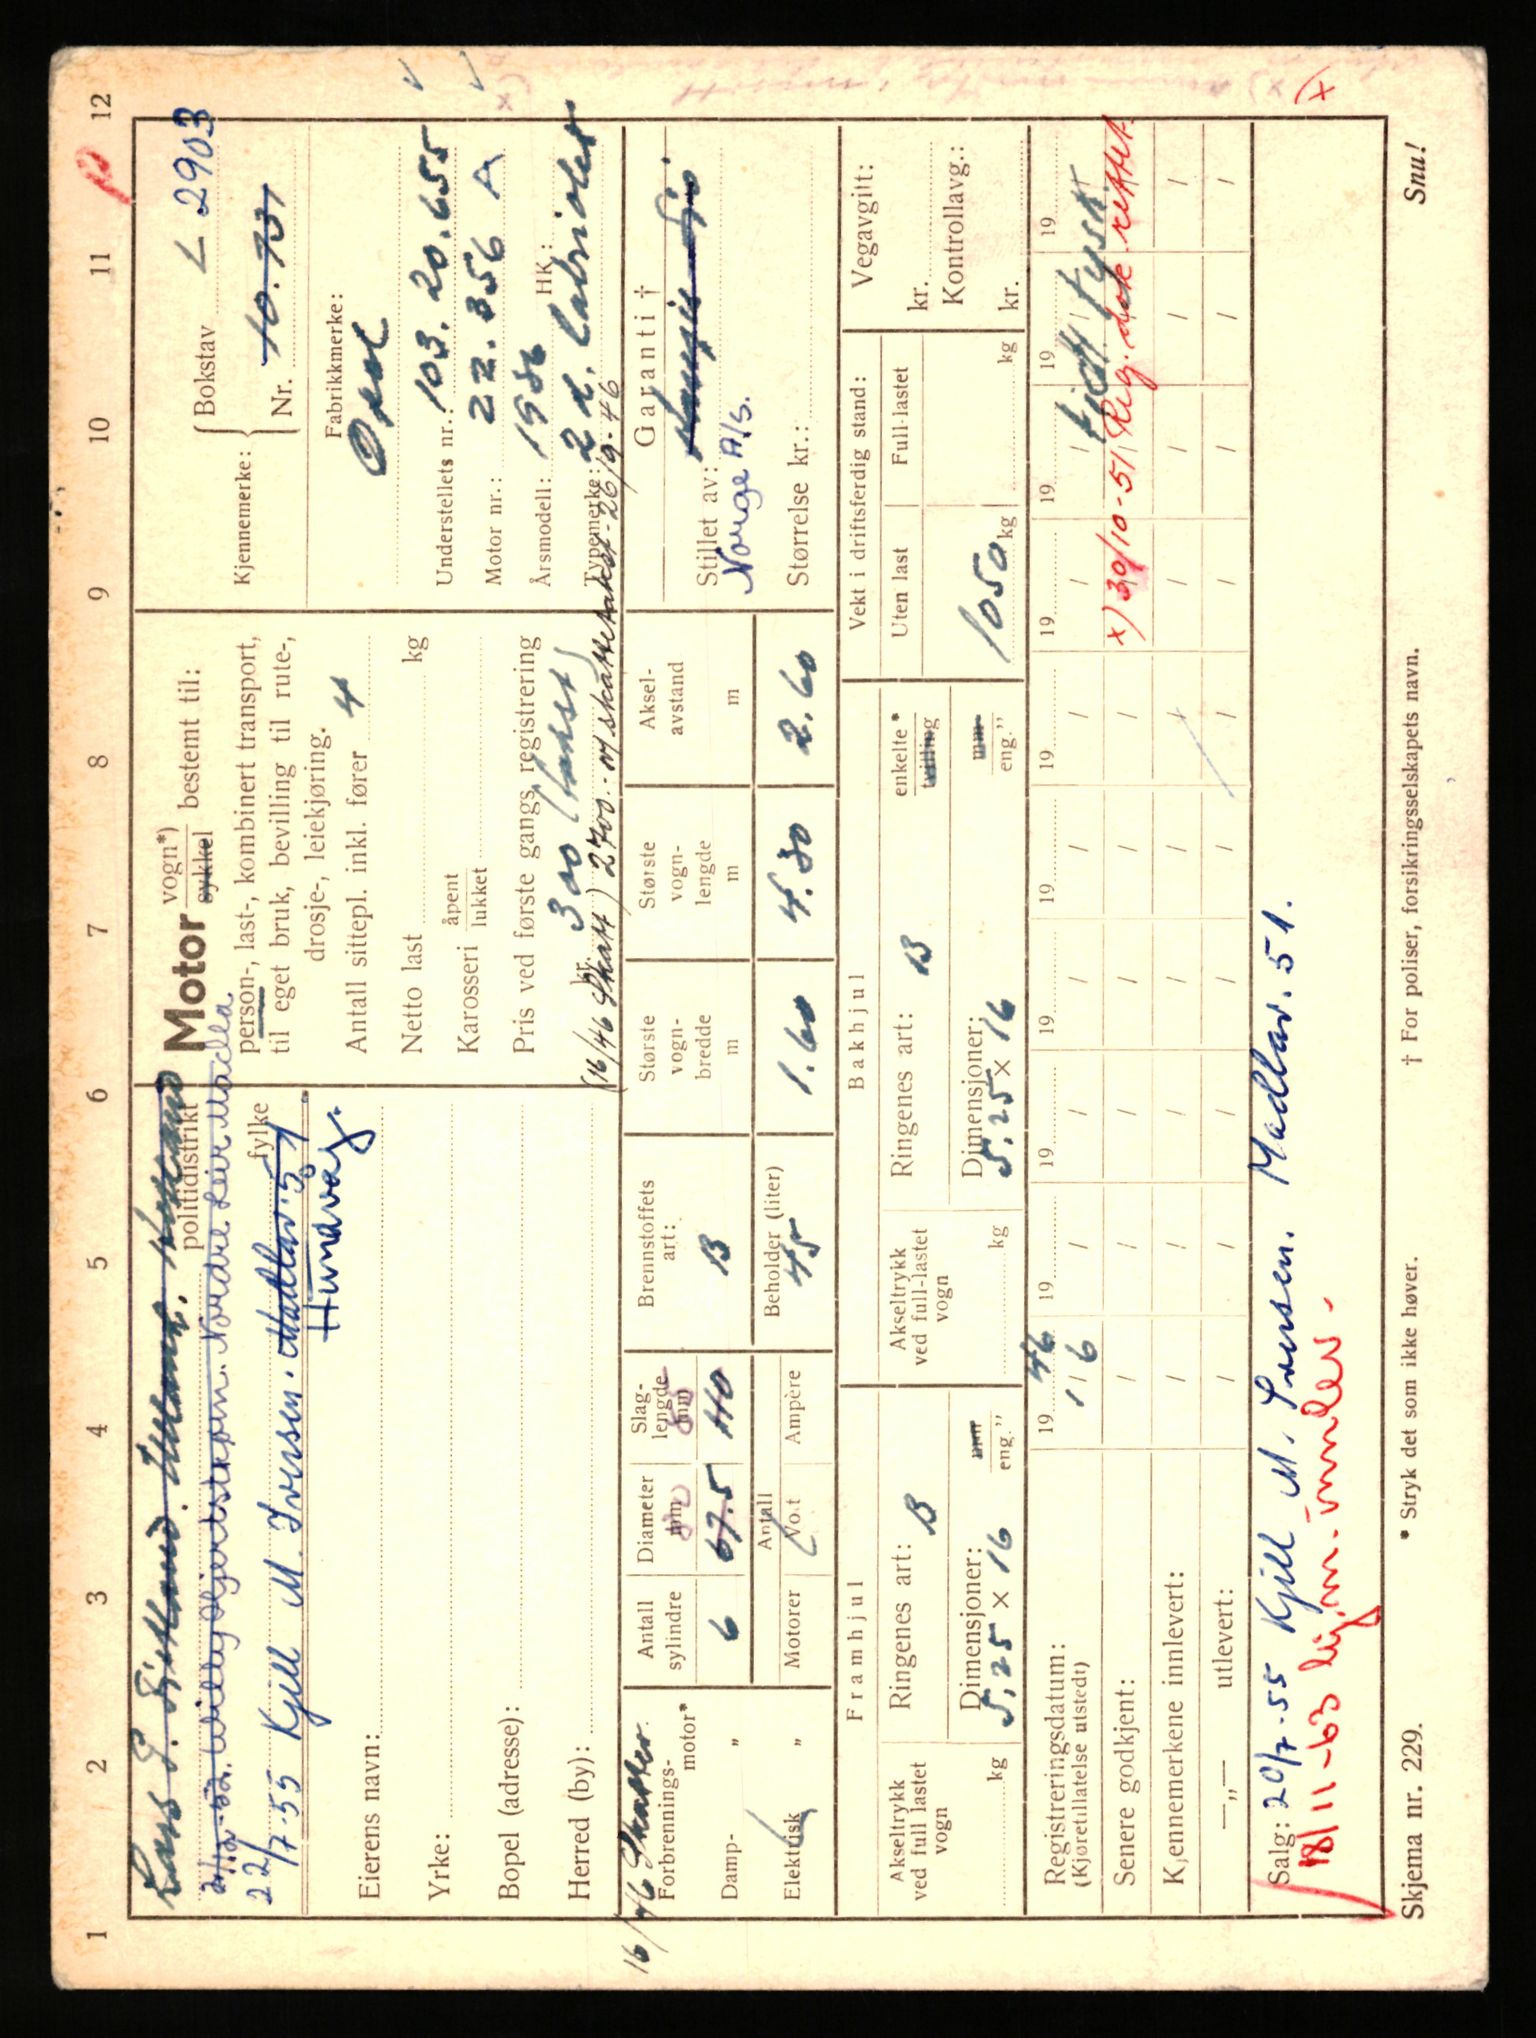 1 2 3 4 5 6 7 8 9 10 11 12
politidistrikt
2/12-52. Willy Hjertstrøm. Nordre Leir Madla.
fylke
22/7-55 Kjell M. Iversen. Madlav. 51
Hundvåg.
Eierens navn:
Yrke:
Bopel (adresse):
Herred (by):
Motor vogn*) sykkel bestemt til:
person-, last-, kombinert transport,
til eget bruk, bevilling til rute-,
drosje-, leiekjøring.
Antall sittepl. inkl. fører 4
Netto last kg
Karosseri åpent lukket
Pris ved første gangs registrering
kr. 300 (takst)
(16/46 Skatt) 2700.- m/skatte takst - 26/9-46
Kjennemerke: Bokstav L 2903
Nr. 10.731
Fabrikkmerke:
Opel
Understellets nr.: 103.20.655
Motor nr.: 22.356 A
Årsmodell: 1936 HK:
Typemerke: 2 d. Cabriolet
16/46 Skatter.
Forbrenningsmotor*
Damp- „
Elektrisk „
Antall sylindre 6
Diameter mm 67.5 80
Slaglengde mm 110
Motorer Antall Volt Ampère
Brennstoffets art: B
Beholder (liter) 45
Største vognbredde m 1.60
Største vognlengde m 4.30
Akselavstand m 2.60
Garanti †
Stillet av:
Norge A/S.
Størrelse kr.:
Framhjul
Akseltrykk ved full lastet vogn kg
Ringenes art: B
Dimensjoner: mm eng."
5.25 × 16
Bakhjul
Akseltrykk ved full-lastet vogn kg
Ringenes art: B
enkelte* tvilling
Dimensjoner: mm eng."
5.25 × 16
Vekt i driftsferdig stand:
Uten last Full-lastet
1050 kg kg
Vegavgift:
kr.
Kontrollavg.:
kr.
Registreringsdatum: 19 46 19 19 19 19 19 19 19 19 19
(Kjøretillatelse utstedt) 1/6 / / / / / / tidl. tysk.
Senere godkjent: / / / / / / x) 30/10-51 Reg. dok rettet.
Kjennemerkene innlevert: / / / / / / / / / /
—„— utlevert: / / / / / / / / / /
Salg: 20/7-55 Kjell M. Iversen. Madlav. 51.
18/11-63
x)
Skjema nr. 229. * Stryk det som ikke høver. † For poliser, forsikringsselskapets navn. Snu!